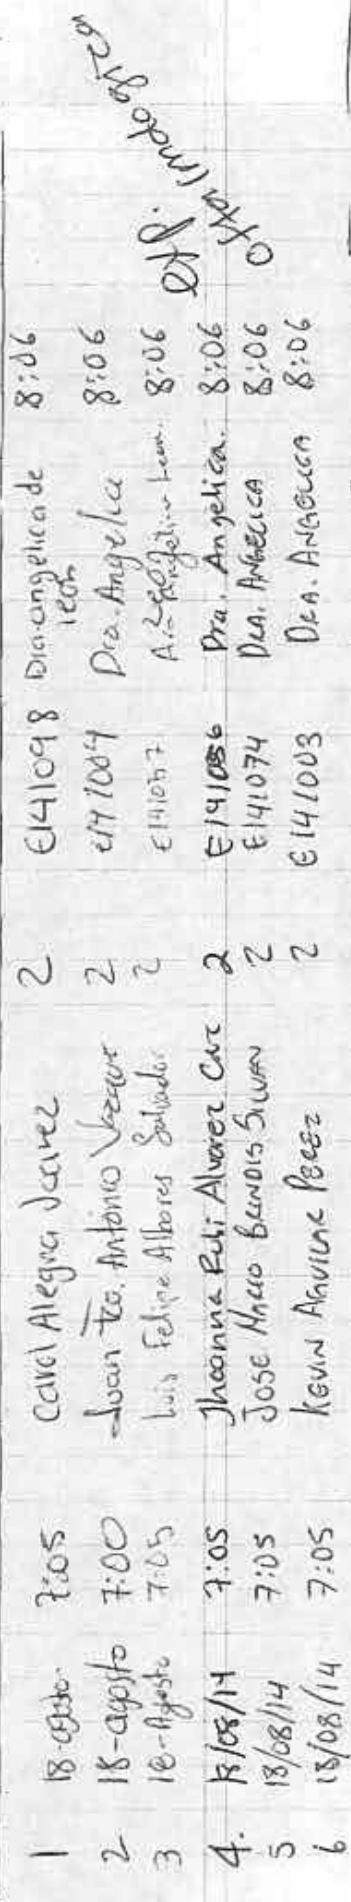 1 18-agosto 7:05 Carol Alegria Juarez 2 E141098 Dra. angelica de leon 8:06
2 18-agosto 7:00 Juan Fco. Antonio 2 E141004 Dra. Angelica 8:06
3 18-Agosto 7:05 Luis Felipe Albores Salvador 2 E141057 8:06
4. 18/08/14 7:05 Jhoanna Alvarez 2 Dra. Angelica. 8:06
5 18/08/14 7:05 JOSE BRINDIS SILVAN 2 E141074 DRA. ANGELICA 8:06
6 18/08/14 7:05 KEVIN AGUILAR PEREZ 2 E141003 DRA. ANGELICA 8:06
exp.
oftalmologica